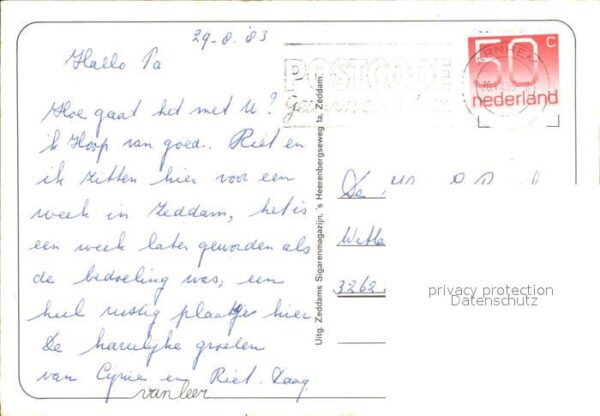 29-8.'83
Hallo Pa
Hoe gaat het met U?
ik Hoop van goed.. Riet en
ik zitten hier voor een
week in Zeddam, het is
een week later geworden als
de bedoeling was, een
heel rustig plaatje hier
De hartelijke groeten
van Cynie en Riet. Daag
van leer
POSTCODE
ARNHEM
50 c
nederland
Uitg. Zeddams Sigarenmagazijn, 's Heerenbergseweg 1a, Zeddam
De
3262
privacy protection
Datenschutz